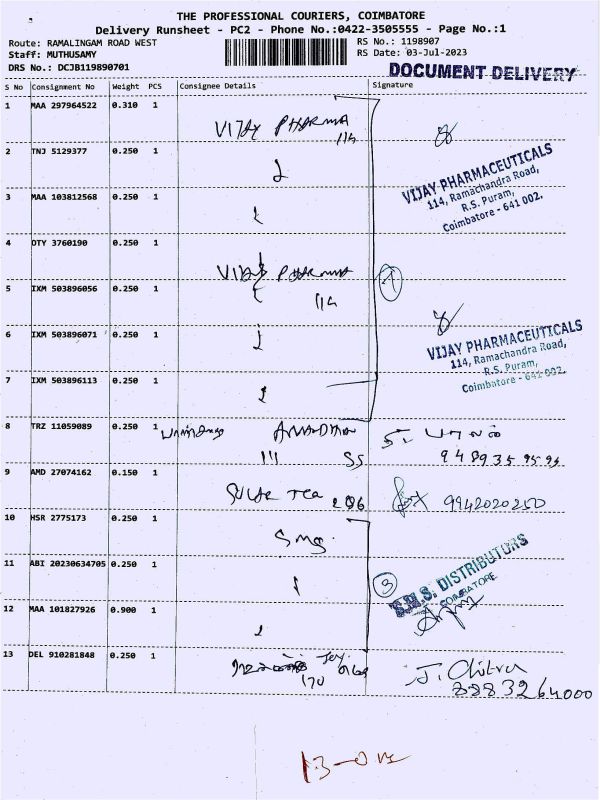 THE PROFESSIONAL COURIERS, COIMBATORE
Delivery Runsheet - PC2 - Phone No.:0422-3505555 - Page No.:1
Route: RAMALINGAM ROAD WEST
Staff: MUTHUSAMY
DRS No.: DCJB119890701
RS No.: 1198907
RS Date: 03-Jul-2023
DOCUMENT DELIVERY
S No Consignment No Weight PCS Consignee Details Signature
1 MAA 297964522 0.310 1
VIJAY PHARMA
114
2 TNJ 5129377 0.250 1
VIJAY PHARMACEUTICALS
114, Ramachandra Road,
R.S. Puram,
Coimbatore - 641 002.
3 MAA 103812568 0.250 1
4 OTY 3760190 0.250 1
VIJAY PHARMA
114
7
5 IXM 503896056 0.250 1
6 IXM 503896071 0.250 1
VIJAY PHARMACEUTICALS
114, Ramachandra Road,
R.S. Puram,
Coimbatore - 641 002.
7 IXM 503896113 0.250 1
8 TRZ 11059089 0.250 1
111 SS
9 AMD 27074162 0.150 1
206 9942020250
10 HSR 2775173 0.250 1
SMS
11 ABI 20230634705 0.250 1
3
S.M.S. DISTRIBUTORS
COIMBATORE
12 MAA 101827926 0.900 1
13 DEL 910281848 0.250 1
170
J. Chitra
8883264000